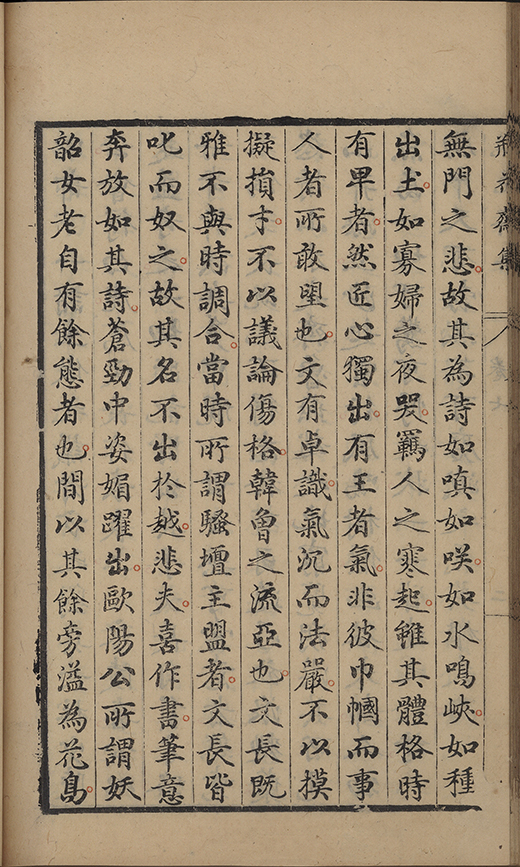 無門之悲故其為詩如嗔如咲如水鳴峽如種
出土如寡婦之夜哭羈人之寒起雖其體格時
有卑者然匠心獨出有王者氣非彼巾幗而事
人者所敢望也文有卓識氣沉而法嚴不以摸
擬損才不以議論傷格韓魯之流亞也文長既
雅不與時調合當時所謂騷壇主盟者文長皆
叱而奴之故其名不出於越悲夫喜作書筆意
奔放如其詩蒼勁中姿媚躍出歐陽公所謂妖
韶女老自有餘態者也間以其餘旁溢為花鳥